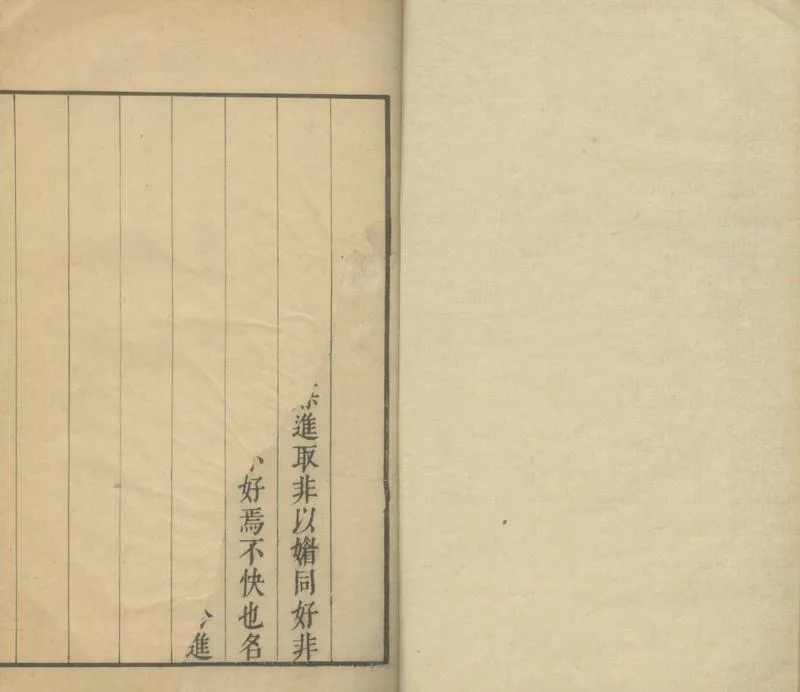 進取非以媚同好非
好焉不快也名
進